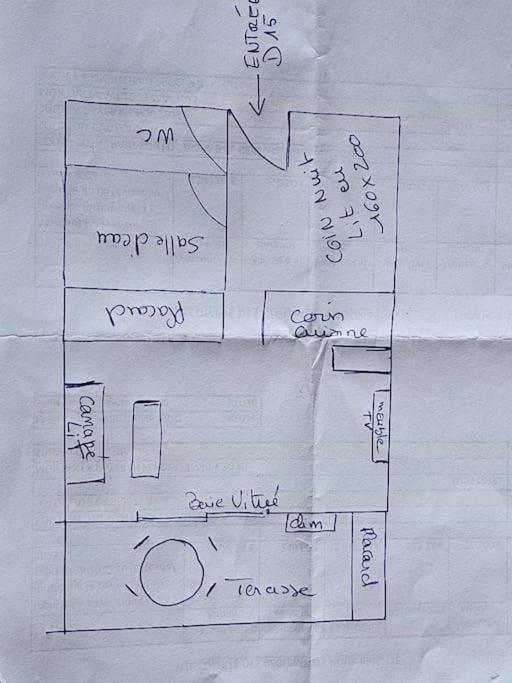 ENTRÉE
D15
WC
COIN Nuit
Lit en
160 x 200
Salle d'eau
Placard
Coin
Cuisine
Canapé
Lit
meuble
TV
Baie Vitrée
clim
Placard
Terasse